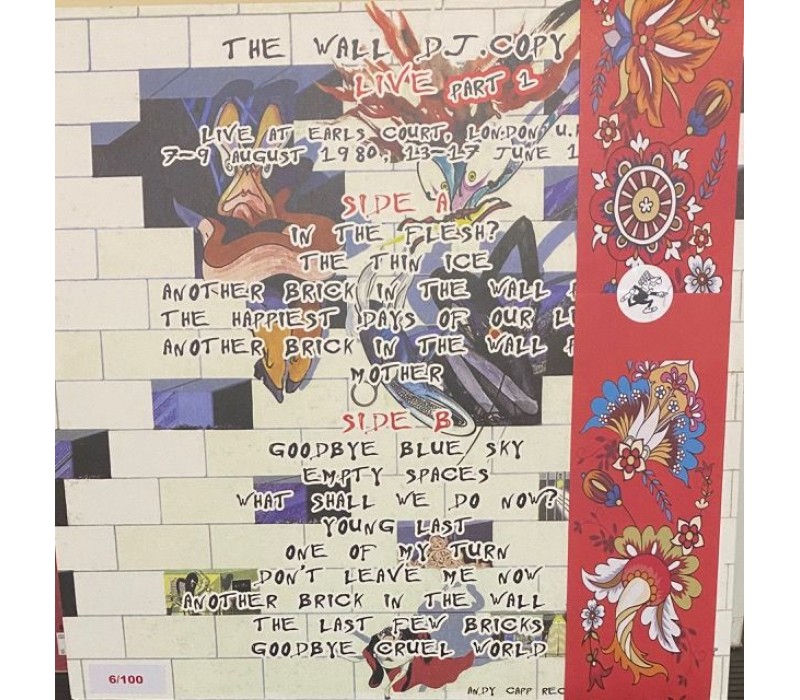 THE WALL DJ.COPY
LIVE PART 1
LIVE AT EARLS COURT, LONDON, U.K
7-9 AUGUST 1980, 13-17 JUNE 1
SIDE A
IN THE FLESH?
THE THIN ICE
ANOTHER BRICK IN THE WALL
THE HAPPIEST DAYS OF OUR LI
ANOTHER BRICK IN THE WALL
MOTHER
SIDE B
GOODBYE BLUE SKY
EMPTY SPACES
WHAT SHALL WE DO NOW?
YOUNG LAST
ONE OF MY TURN
DON'T LEAVE ME NOW
ANOTHER BRICK IN THE WALL
THE LAST FEW BRICKS
GOODBYE CRUEL WORLD
6/100
ANDY CAPP REC